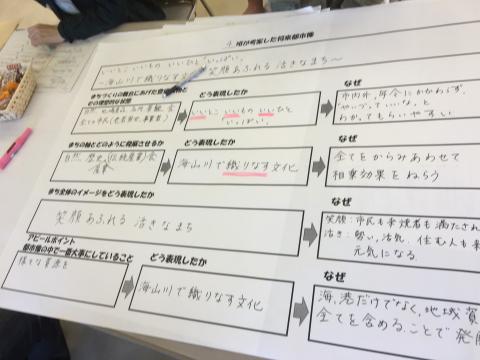 4. 班が考案した将来都市像
いいとこ いいもの いいひと いっぱい。
〜海山川で織りなす文化 笑顔あふれる活きなまち〜
まちづくりの舞台にあげた
その理想的な状態
どう表現したか
なぜ
いいとこ いいもの いいひと
いっぱい。
市内外、年令にかかわらず、
わかってもらいやすい
まちの軸とどのように発展させるか
どう表現したか
なぜ
自然、歴史、伝統産業
産業
海山川で織りなす文化
全てをからみあわせて
相乗効果をねらう
まち全体のイメージをどう表現したか
なぜ
笑顔あふれる 活きなまち
笑顔:市民も来煙者も満たされ
活き:勢い、活気、住む人も来
元気になる
アピールポイント
都市像の中で一番大事にしていること
どう表現したか
なぜ
様々な資源を
海山川で織りなす文化
海、港だけでなく、地域資
全てを含めることで発